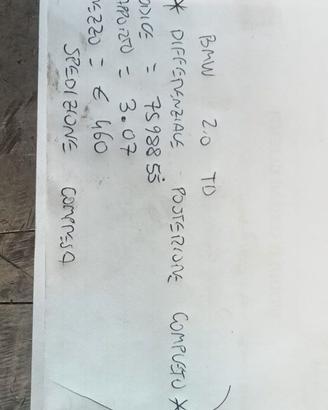 BMW 2.0 TD
* DIFFERENZIALE POSTERIORE COMPLETO *
ODICE = 7598855
APPORTO = 3.07
EZZO = € 460
SPEDIZIONE COMPRESA